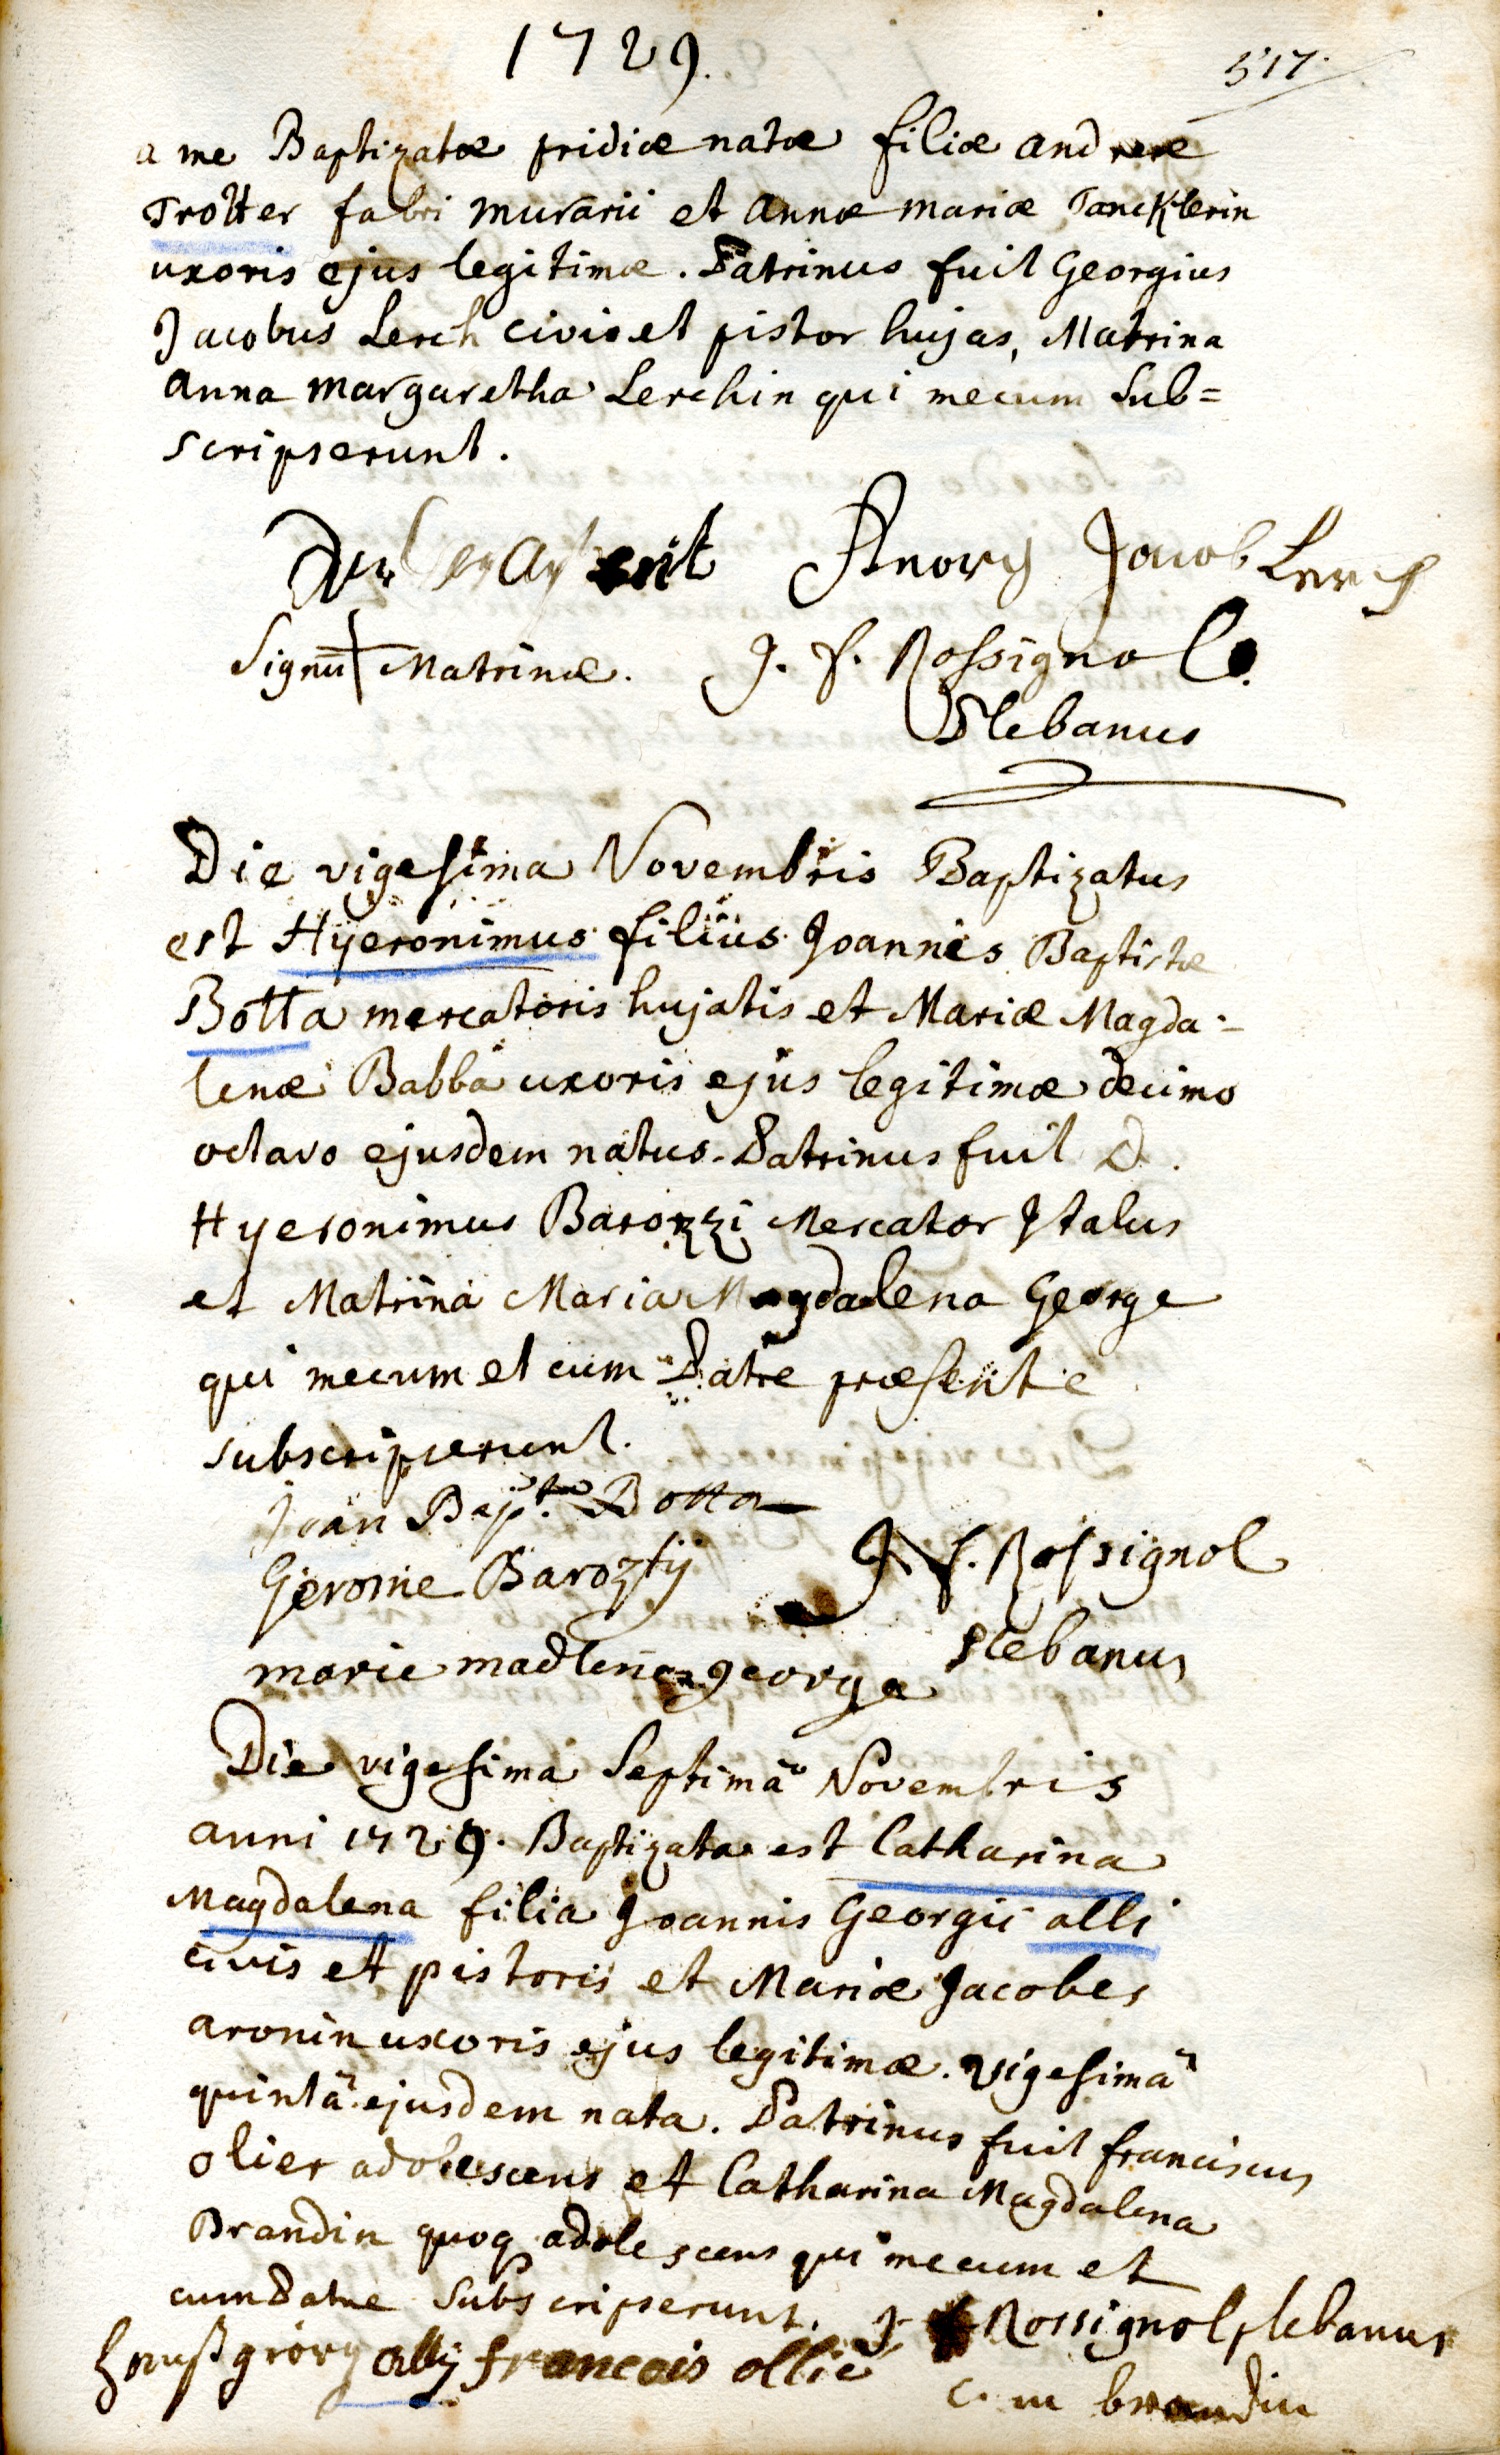 1729.
517.
a me Baptizatæ pridie natæ filiæ andreæ
Trotter fabri murarii et annæ mariæ Tancklerin
uxoris ejus legitimæ. Patrinus fuit Georgius
Jacobus Lerch civis et pistor hujas, Matrina
anna margaretha Lerchin qui mecum sub=
scripserunt.
Jacob Lerch
Signū + Matrinæ. J. F. Rossignol
Plebanus
Die vigesima Novembris Baptizatus
est Hyeronimus filius Joannis Baptistæ
Botta mercatoris hujatis et Mariæ Magda-
lenæ Babba uxoris ejus legitimæ decimo
octavo ejusdem natus. Patrinus fuit D.
Hyeronimus Barozzi Mercator Italus
et Matrina Maria Magdalena George
qui mecum et cum Patre præsente
subscripserunt.
Joan Bapta Botta
Gerome Barozzij J. F. Rossignol
marie madlena george plebanus
Die vigesima Septimâ Novembris
anni 1729. Baptizata est Catharina
Magdalena filia Joannis Georgii olli
civis et pistoris et Mariæ Jacobes
aronin uxoris ejus legitimæ. vigesimâ
quintâ ejusdem nata. Patrinus fuit franciscus
olier adolescens et Catharina Magdalena
Brandin quoq adolescens qui mecum et
cum Patre Subscripserunt. J F Rossignol plebanus
olly francois ollie
c. m brandin